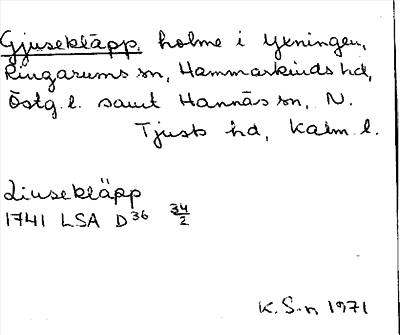 Gjusekläpp, holme i Yxningen,
Ringarums sn, Hammarkinds hd,
Östg. l. samt Hannäs sn, N.
Tjusts hd, Kalm. l.
Liusekläpp
1741 LSA D36 34/2
K. S-n 1971